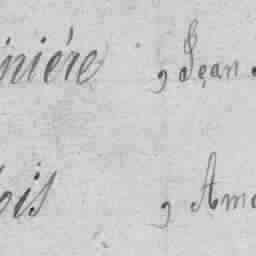 inière , Jean
ois , Am